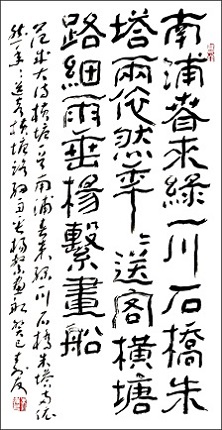 南浦春来綠一川石橋朱
塔兩依然年〻送客橫塘
路細雨垂楊繫畫船
范成大詩橫塘一首南浦春来綠一川石橋朱塔兩依
然年〻送客橫塘路細雨垂楊繫畫船癸巳